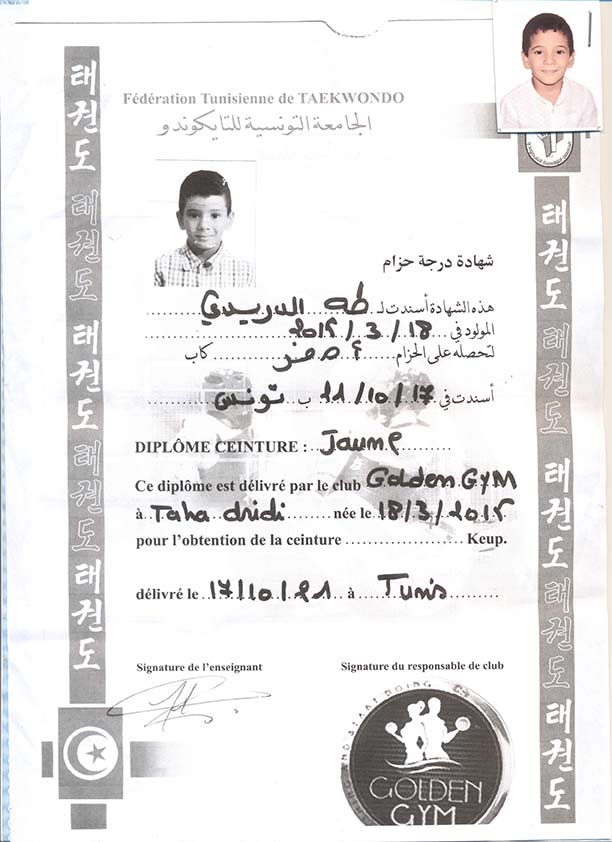 Fédération Tunisienne de TAEKWONDO
الجامعة التونسية للتايكوندو
태권도 태권도 태권도 태권도 태권도
태권도 태권도 태권도 태권도 태권도
شهادة درجة حزام
هذه الشهادة أسندت لـ طه الدريدي
المولود في 18/3/2015
لتحصله على الحزام أصفر كاب
أسندت في 17/10/21 ب تونس
DIPLÔME CEINTURE : Jaune
Ce diplôme est délivré par le club Golden GYM
à Taha dridi née le 18/3/2015
pour l'obtention de la ceinture Keup.
délivré le 17/10/21 à Tunis
Signature de l'enseignant
Signature du responsable de club
GOLDEN
GYM